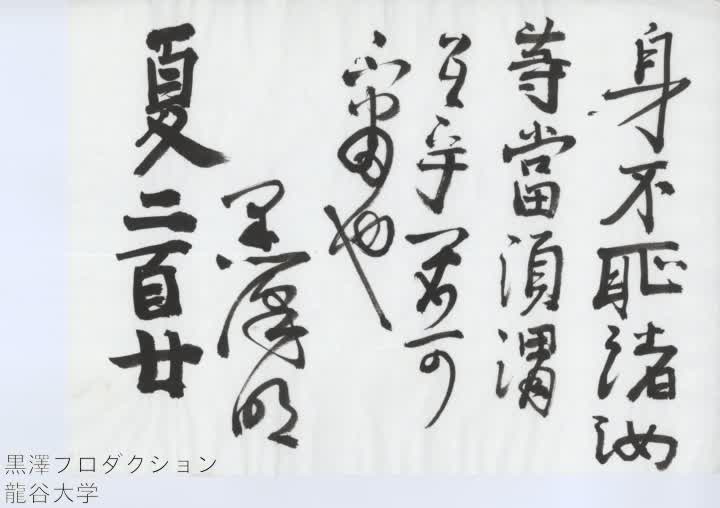 身不恥諸汝
等當須謂
可
不審也
黒澤明
夏二百廿
黒澤プロダクション
龍谷大学